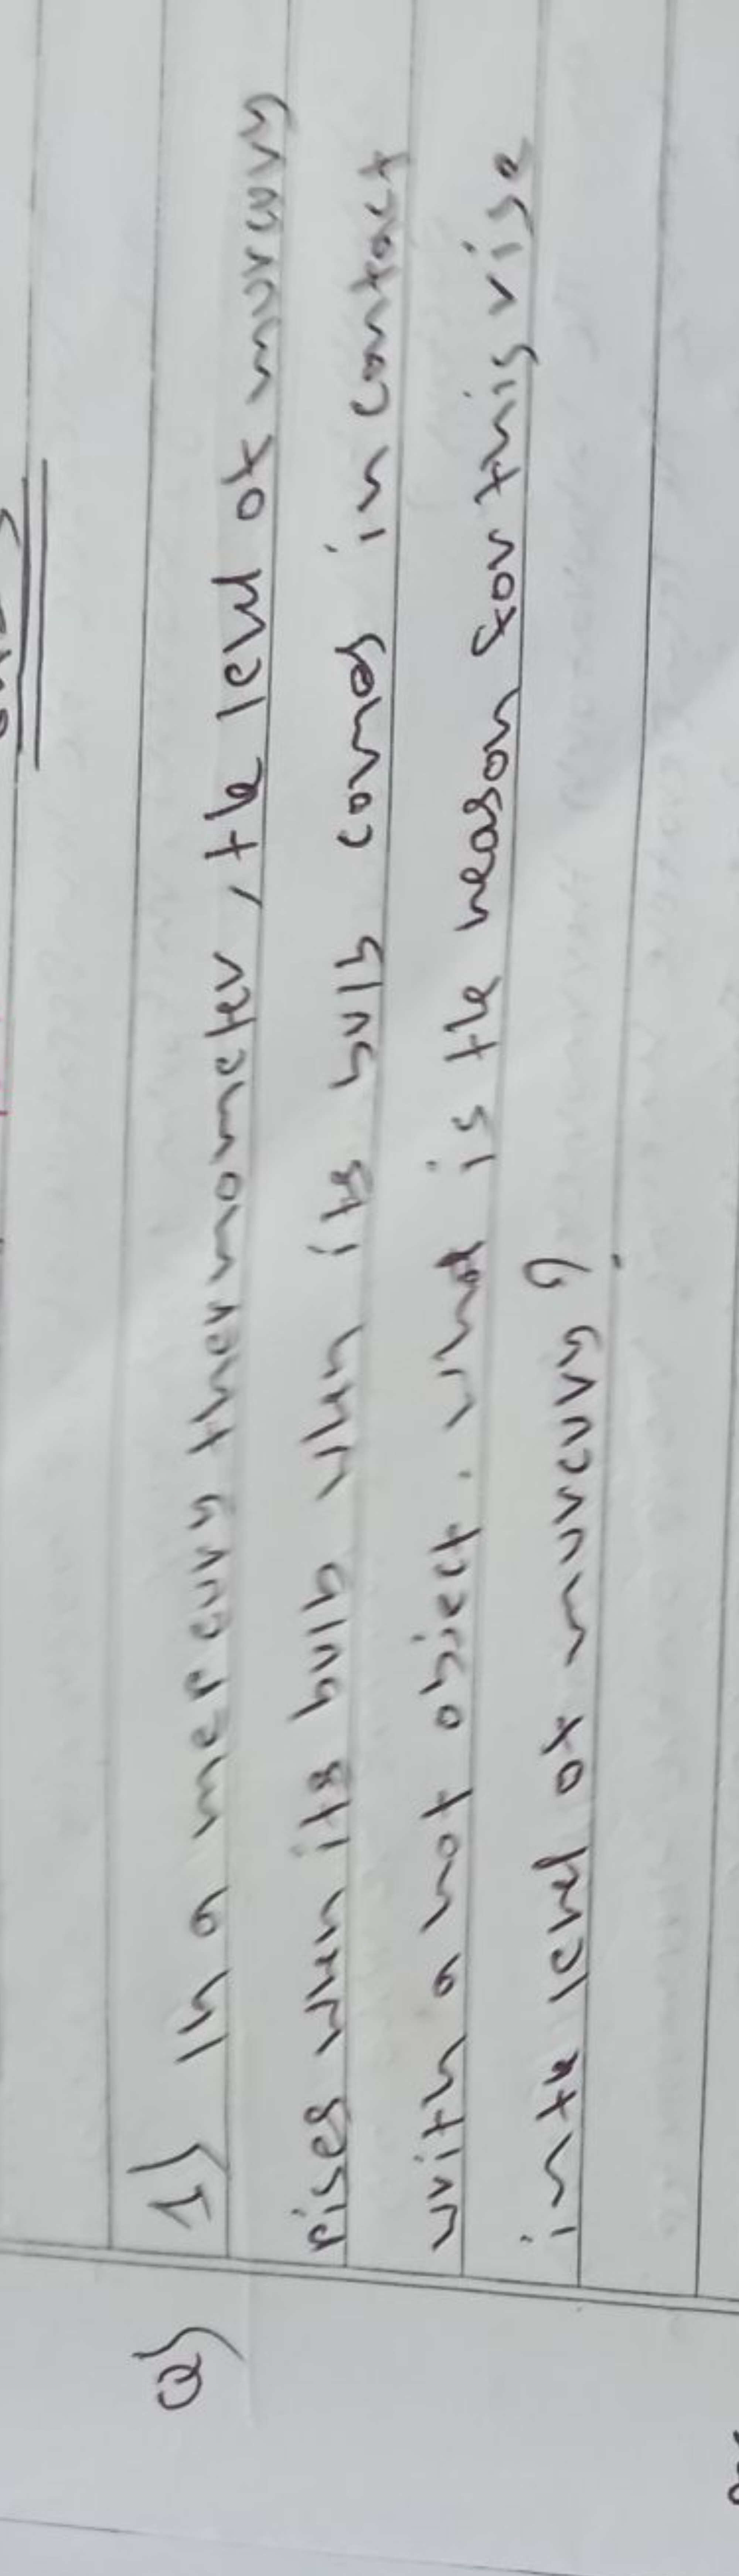 Q) 1) In a mercury thermometer, the level of mercury
rises when its bulb when its bulb comes in contact
with a hot object. What is the reason for this rise
in the level of mercury ?